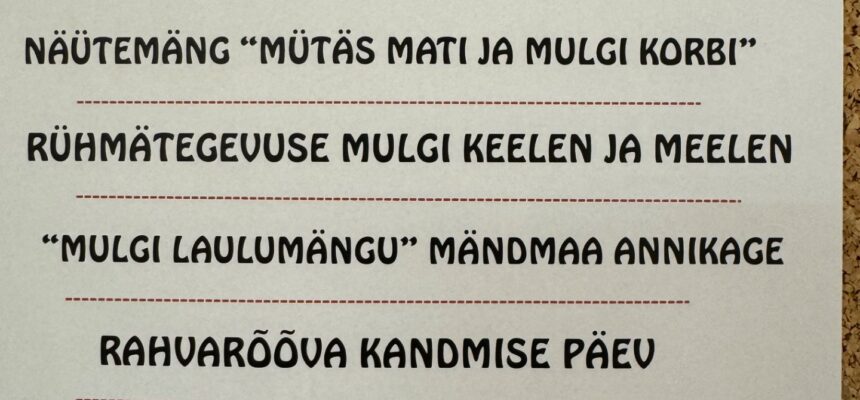 NÄÜTEMÄNG “MÜTÄS MATI JA MULGI KORBI”
RÜHMÄTEGEVUSE MULGI KEELEN JA MEELEN
“MULGI LAULUMÄNGU” MÄNDMAA ANNIKAGE
RAHVARÕÕVA KANDMISE PÄEV